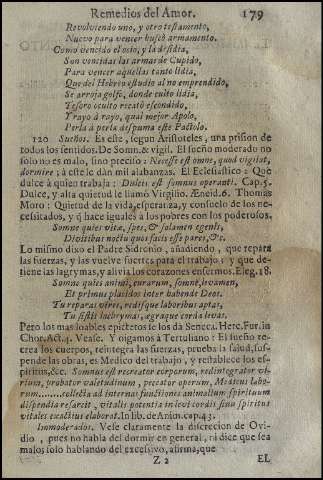 Remedios del Amor. 179
Revolviendo uno, y otro testamento,
Nuevo para vencer buscò armamento.
Como vencido el osio, y la desidia,
Son vencidas las armas de Cupido,
Para vencer aquellas tanto lidia,
Que del Hebreo estudio al no emprendido,
Se arroja golfo, donde culto lidia,
Tesoro oculto recatò escondido,
Y rayo à rayo, qual mejor Apolo,
Perla à perla despuma este Pactolo.
120 Sueños. Es este, segun Aristoteles, una prision de
todos los sentidos. De Somn. & vigil. El sueño moderado no
solo no es malo, sino preciso: Necesse est omne, quod vigilat,
dormire; à este le dàn mil alabanzas. El Eclesiastico: Que
dulce à quien trabaja: Dulcis est somnus operanti. Cap. 5.
Dulce, y alta quietud le llamò Virgilio. Æneid. 6. Thomas
Moro: Quietud de la vida, esperanza, y consuelo de los ne-
cessitados, y q̃ hace iguales à los pobres con los poderosos.
Somne quies vitæ, spes, & solamen egenis,
Divitibus noctu quos facis esse pares, &c.
Lo mismo dixo el Padre Sidronio, añadiendo, que repara
las fuerzas, y las vuelve fuertes para el trabajo: y que de-
tiene las lagrymas, y alivia los corazones enfermos. Eleg. 18.
Somne quies animi, curarum, somne, levamen,
Et primus placidos inter habende Deos.
Tu reparas vires, redisque laboribus aptas,
Tu sistis lachrymas, ægraque corda levas.
Pero los mas loables epictetos se los dà Seneca. Herc. Fur. in
Chor. Act. 4. Vease. Y oigamos à Tertuliano: El sueño re-
crea los cuerpos, reintegra las fuerzas, prueba la salud, sus-
pende las obras, es Medico del trabajo, y restablece los es-
piritus, &c. Somnus est recreator corporum, redintegrator vi-
rium, probator valetudinum, pacator operum, Medicus labo-
rum....... collectis ad internas functiones animalium spirituum
dispendia resarcit, vitalis potentia in levi cordis sinu spiritus
vitales exactius elaborat. In lib. de Anim. cap. 43.
Inmoderados. Vese claramente la discrecion de Ovi-
dio, pues no habla del dormir en general, ni dice que sea
malo, solo hablando del excessivo, afirma, que
Z 2 EL